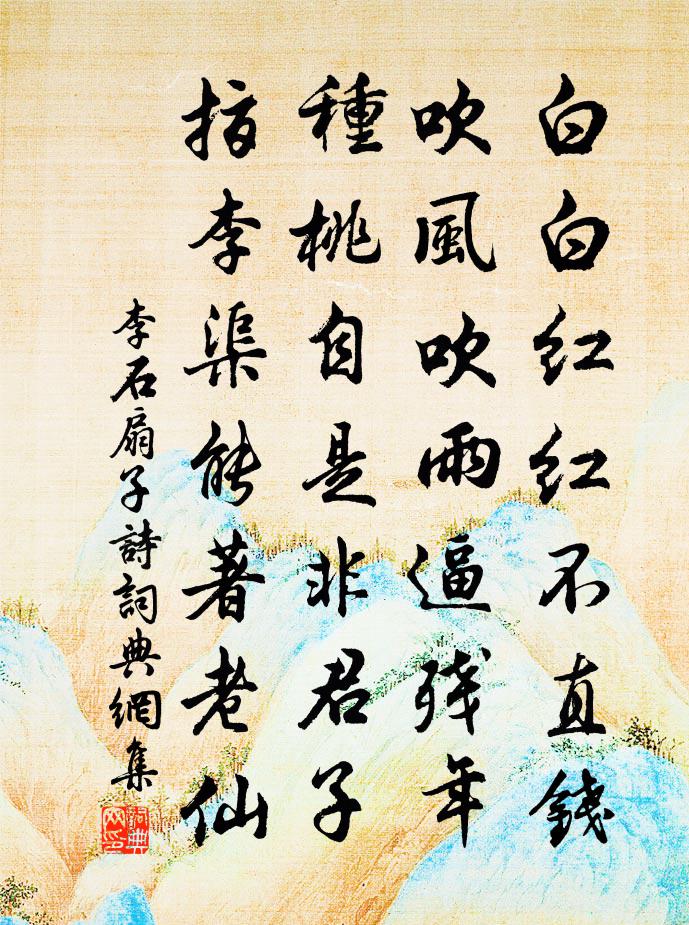 白白红红不直錢
吹風吹雨逼残年
種桃自是非君子
指李渠能著老仙
李石扇子詩詞典網集
詞典
网印